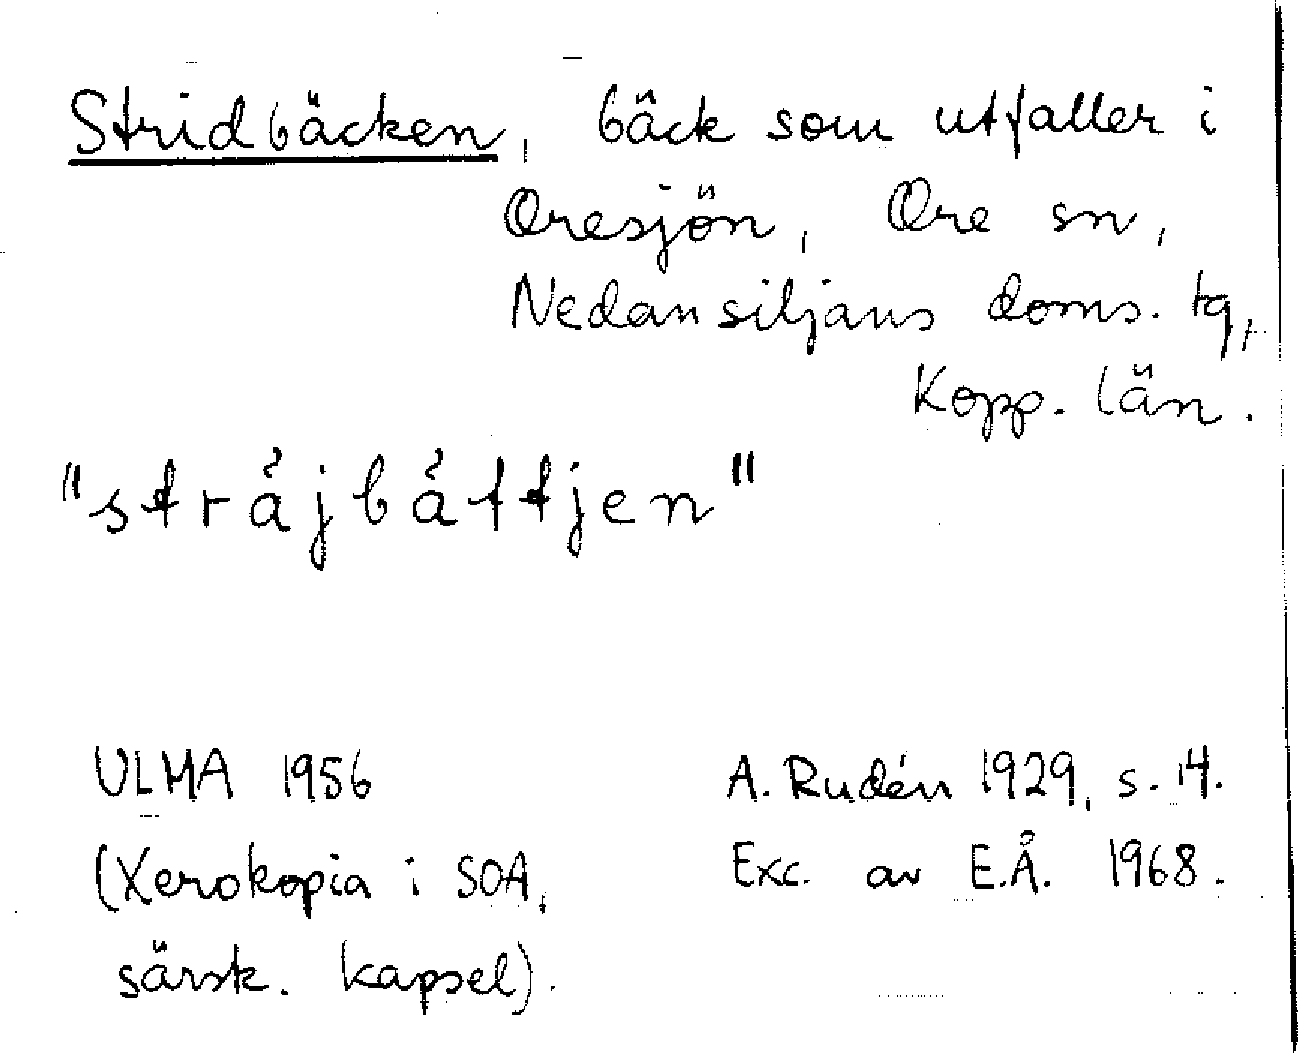 Stridbäcken, bäck som utfaller i
Oresjön, Ore sn,
Nedansiljans doms. tg,
Kopp. län.
"stråjbåttjen"
ULMA 1956
(Xerokopia i SOA,
särsk. kapsel).
A. Rudén 1929, s. 14.
Exc. av E.Å. 1968.